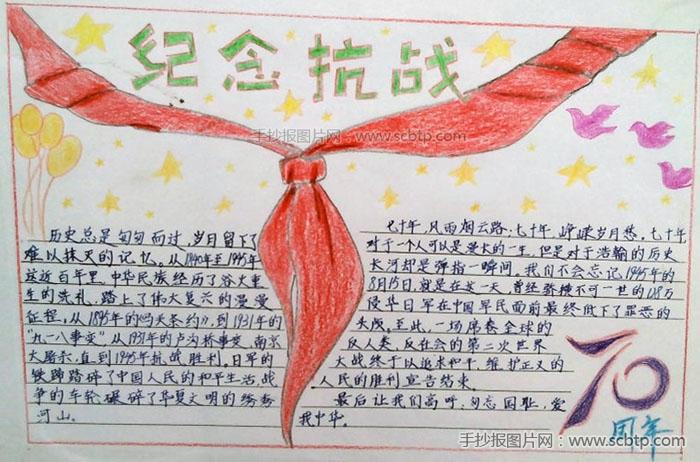 纪念抗战
手抄报图片网：www.scbtp.com
历史总是匆匆而过，岁月留下了
难以抹灭的记忆。从1840年至1945年
这近百年里，中华民族经历了
的洗礼，踏上了伟大复兴的漫漫
征程，从1895年的《马关条约》，到1931年的
“九一八事变”从1937年的卢沟桥事变、南京
大屠杀，直到1945年抗战胜利。日军的
铁蹄踏碎了中国人民的和平生活，战
争的车轮碾碎了华夏文明的锦秀
河山。
七十年，风雨烟云路，七十年，峥嵘岁月愁。七十年
对于一个人可以是漫长的一生，但是对于浩翰的历史
长河却是弹指一瞬间。我们不会忘记1945年的
8月15日，就是在这一天，曾经骄横不可一世的128万
侵华日军在中国军民面前最终低下了罪恶的
头颅。至此，一场席卷全球的
反人类、反社会的第二次世界
大战终于以追求和平、维护正义的
人民的胜利宣告结束。
最后让我们高呼：勿忘国耻，爱
我中华。
70
周年
手抄报图片网：www.scbtp.com